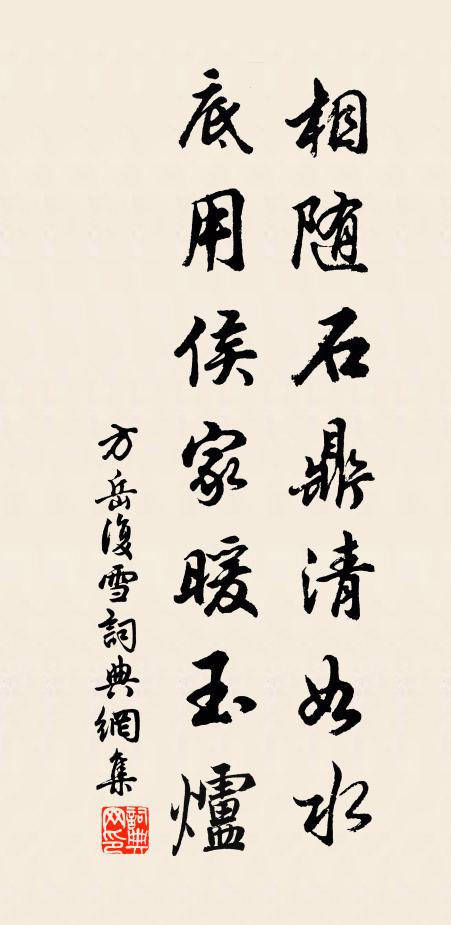 相随石鼎清如水
底用侯家暖玉爐
方岳復雪詞典網集
詞典网印